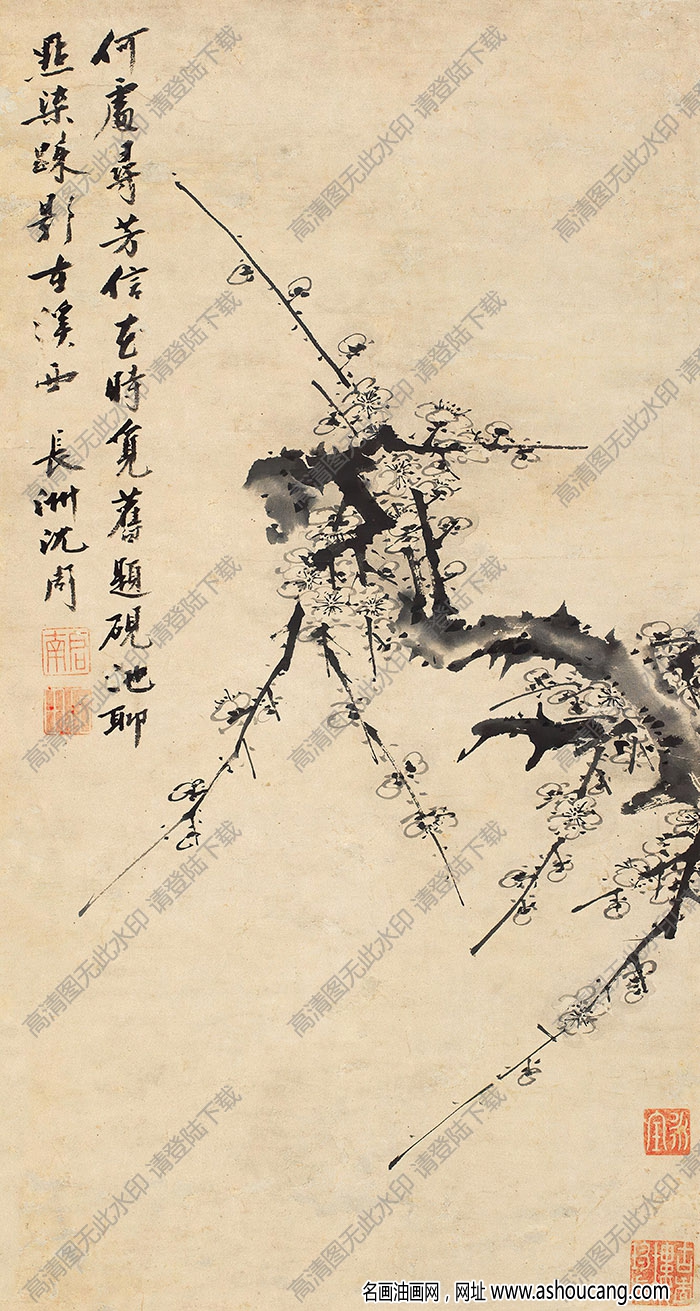 何處尋芳信花時覓舊題硯池聊
點染疎影在溪西 長洲沈周
啟南
高清图无此水印 请登陆下载
名画油画网，网址 www.ashoucang.com